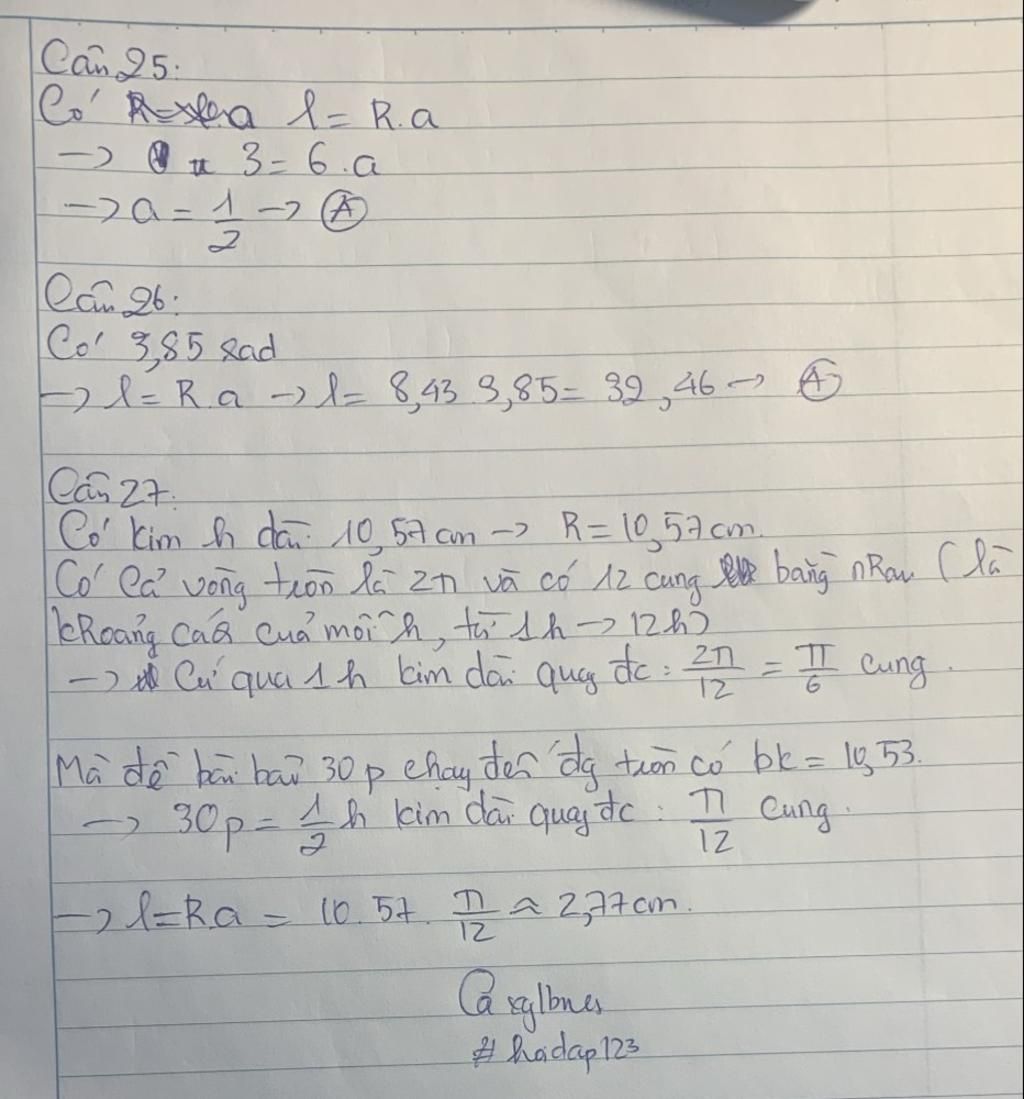 Câu 25:
Có l = R.a
→ 3 = 6.a
→ a = 1/2 → Ⓐ
Câu 26:
Có 3,85 rad
→ l = R.a → l = 8,43 3,85 = 32,46 → Ⓐ
Câu 27:
Có kim h dài 10,57 cm → R = 10,57 cm.
Có cả vòng tròn là 2π và có 12 cung bằng nhau (là
khoảng các của mỗi h, từ 1h → 12h)
→ Cứ qua 1h kim dài quay đc : 2π/12 = π/6 cung.
Mà đề bài bảo 30p chạy đến đg tròn có bk = 10,53.
→ 30p = 1/2 h kim dài quay đc : π/12 cung.
→ l = R.a = 10.57. π/12 ≈ 2,77cm.
# hoidap123